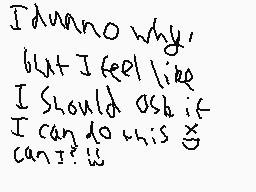 I dunno why,
but I feel like
I should ask if
I can do this
can I?